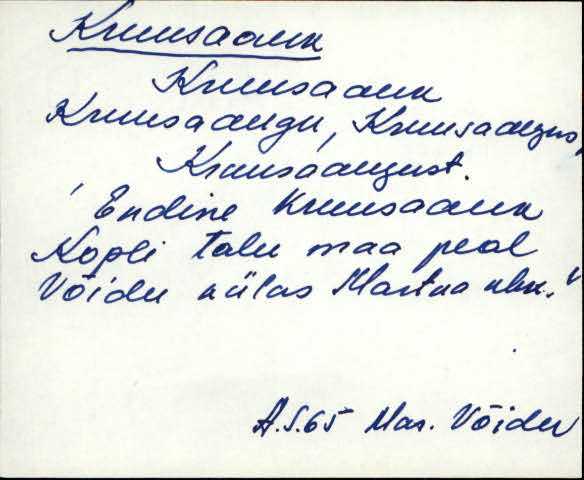 Kruusaauk
Kruusaauk
Kruusaaugu, Kruusaaugus,
Kruusaaugust.
"Endine kruusaauk
Kopli talu maa peal
Võidu külas Martna khk."
A.S.65 Mar. Võidu